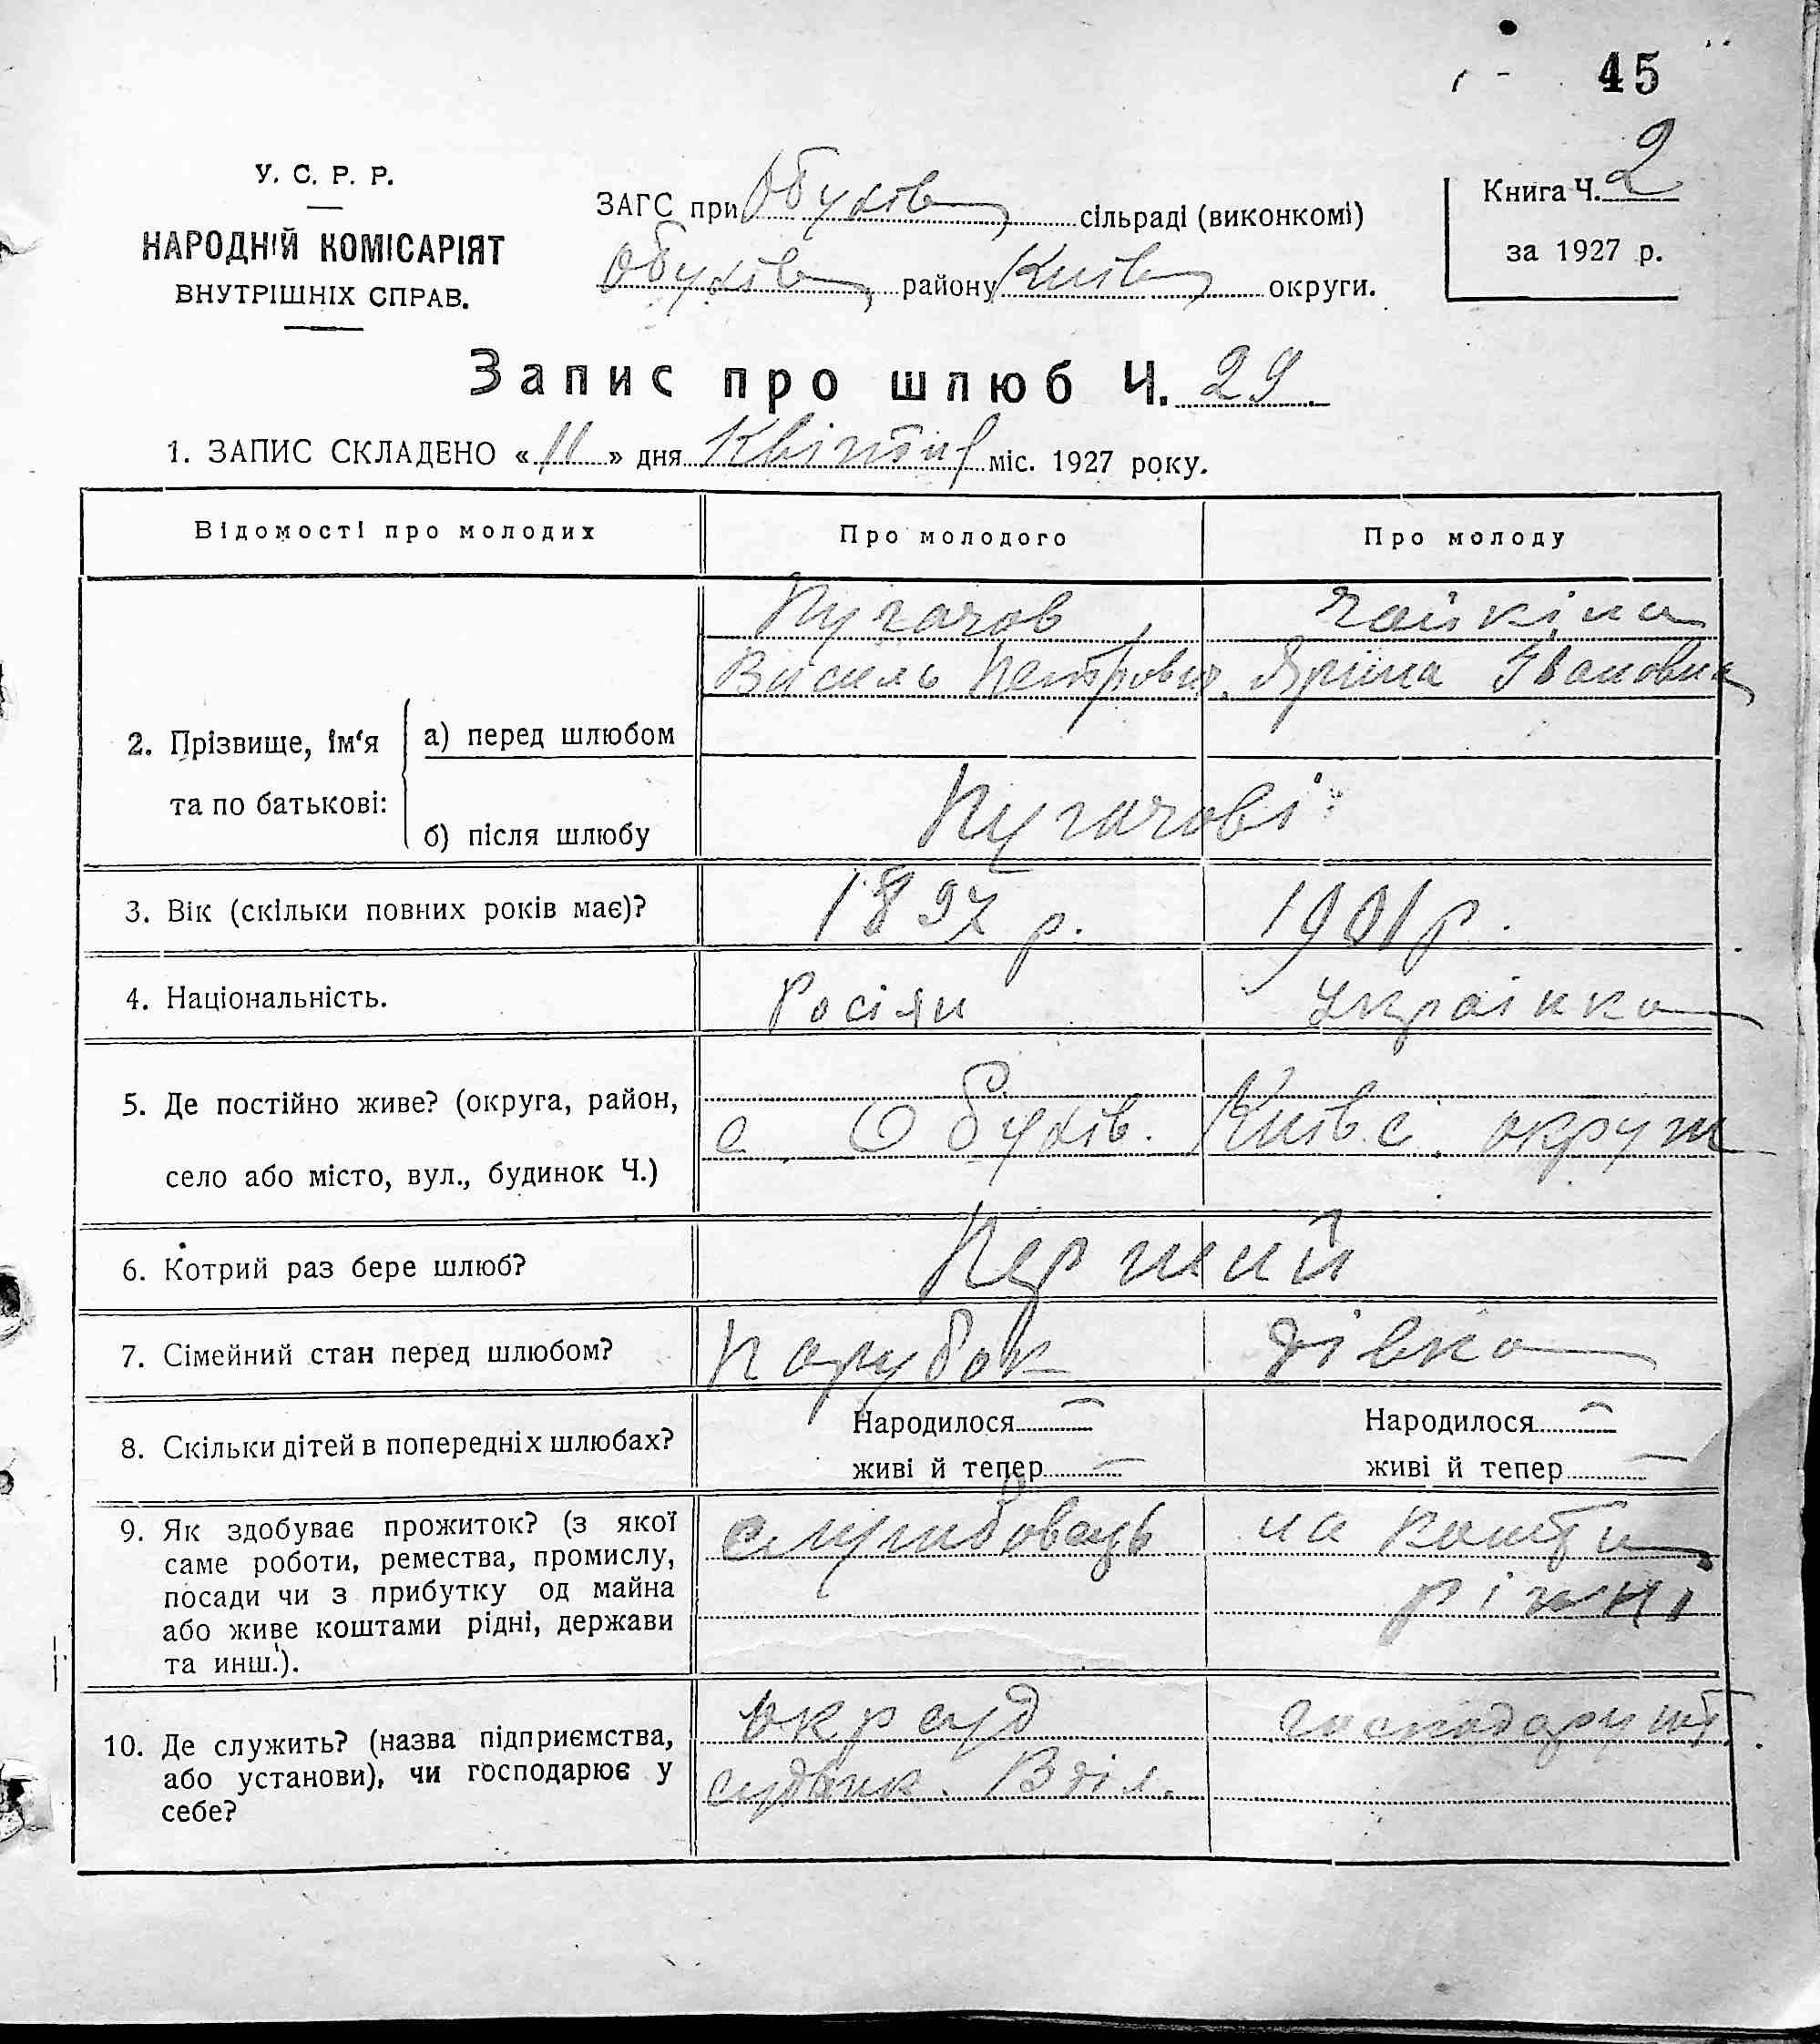 45
У. С. Р. Р.
НАРОДНІЙ КОМІСАРІЯТ
ВНУТРІШНІХ СПРАВ.
ЗАГС при Обухів сільраді (виконкомі)
Обухів району Київ округи.
Книга Ч. 2
за 1927 р.
Запис про шлюб Ч. 29
1. ЗАПИС СКЛАДЕНО «11» дня Квітня міс. 1927 року.
Відомості про молодих Про молодого Про молоду
Пугачов Чайкіна
Василь Петрович Яріна Івановна
2. Прізвище, ім‘я та по батькові: а) перед шлюбом
б) після шлюбу Пугачові
3. Вік (скільки повних років має)? 1897 р. 1901 р.
4. Національність. Росіян Українка
5. Де постійно живе? (округа, район,
село або місто, вул., будинок Ч.) с. Обухів. Київс. округи
6. Котрий раз бере шлюб? Перший
7. Сімейний стан перед шлюбом? парубок дівка
8. Скільки дітей в попередніх шлюбах? Народилося — Народилося —
живі й тепер — живі й тепер —
9. Як здобуває прожиток? (з якої службовець на кошти
саме роботи, ремества, промислу, рідні
посади чи з прибутку од майна
або живе коштами рідні, держави
та инш.).
10. Де служить? (назва підприємства, окрсуд господарує
або установи), чи господарює у
себе?